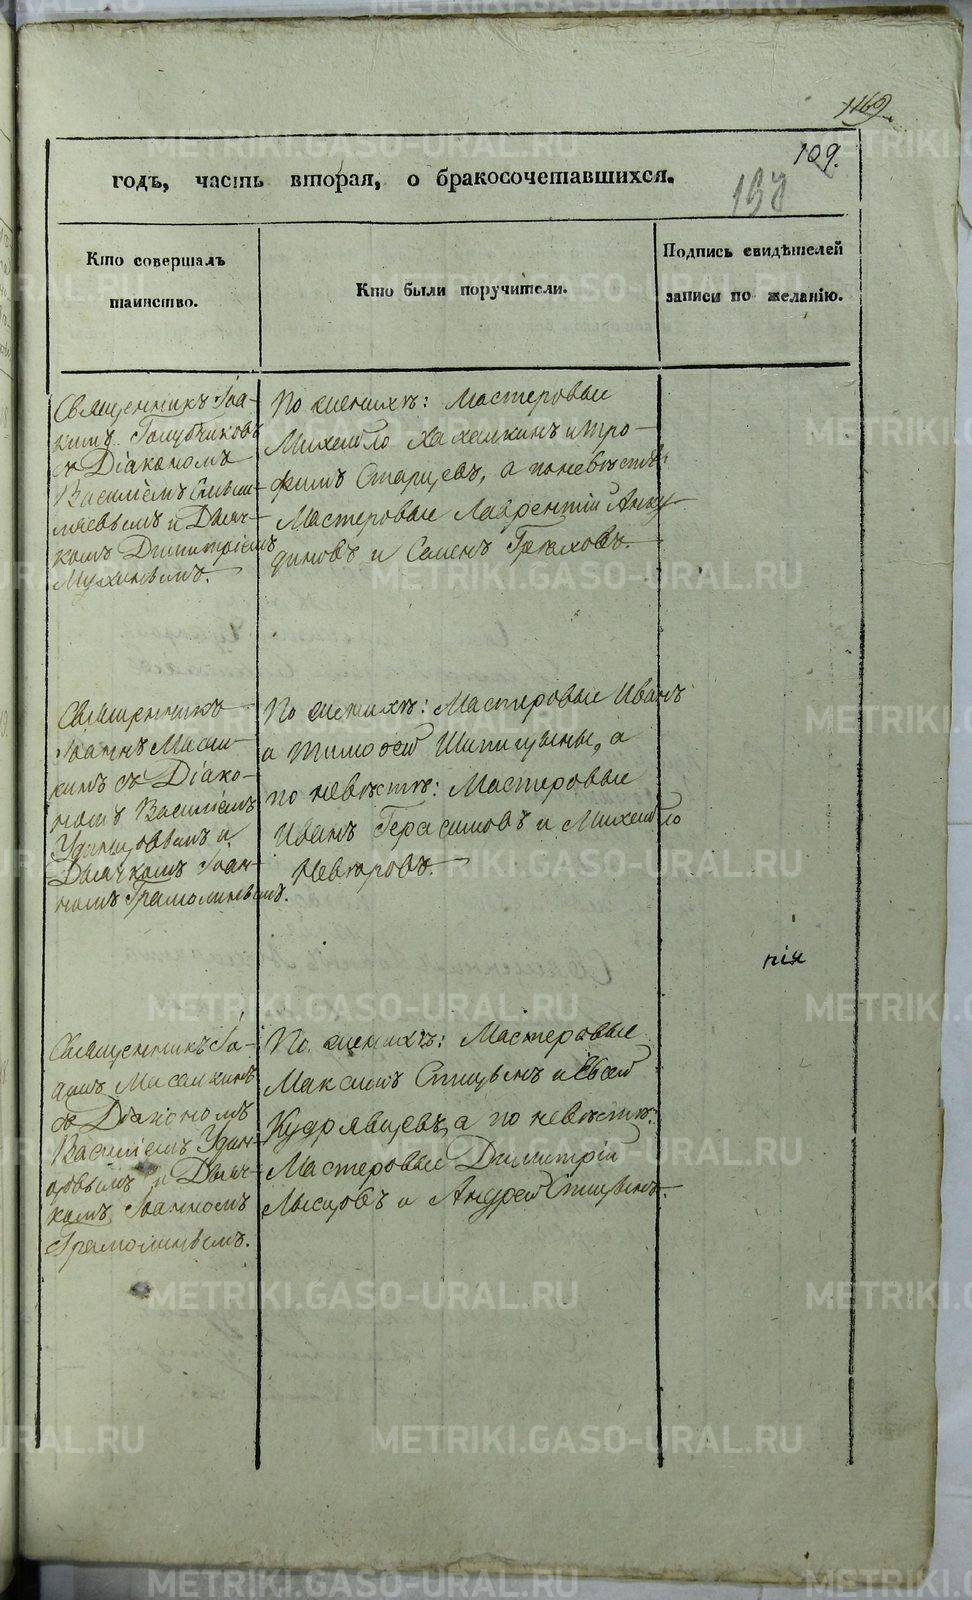 1169
109.
годъ, часть вторая, о бракосочетавшихся.
Кто совершалъ
таинство.
Кто были поручители.
Подпись свидѣтелей
записи по желанію.
Священникъ Іоа-
кимъ Голубчиковъ
съ Діакономъ
Василіемъ
и Дьяч-
комъ Димитріемъ
Мухинымъ.
По женихѣ: Мастеровые
Михайло Халямкинъ и Тро-
фимъ Старцевъ, а по невѣстѣ:
Мастеровые Лаврентій Анку-
диновъ и Семенъ Грѣховъ.
Священникъ
Іоаннъ Масал-
кинъ съ Діако-
номъ Василіемъ
Удинцовымъ и
Дьячкомъ Іоан-
номъ Грамолинымъ.
По женихѣ: Мастеровые Иванъ
и Тимофей Шипицыны, а
по невѣстѣ: Мастеровые
Иванъ Герасимовъ и Михайло
Невзоровъ.
нія
Священникъ Іо-
аннъ Масалкинъ
съ Діакономъ
Василіемъ Удин-
цовымъ и Дьяч-
комъ Іоанномъ
Грамолинымъ.
По женихѣ: Мастеровые
Максимъ Стицынъ и Евсей
Кудрявцевъ, а по невѣстѣ:
Мастеровые Димитрій
Лысцовъ и Андрей Стицынъ.
METRIKI.GASO-URAL.RU